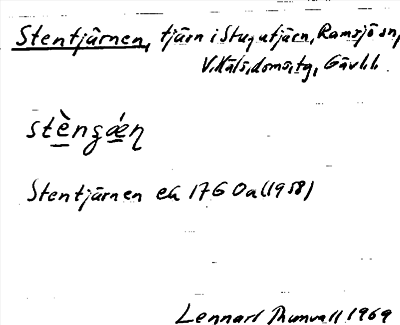 Stentjärnen, tjärn i Stugutjärn, Ramsjö sn,
V. Häls. doms. tg, Gävl.l.
stèngǽn
Stentjärnen ek 17G 0a (1958)
Lennart Thunvall 1969